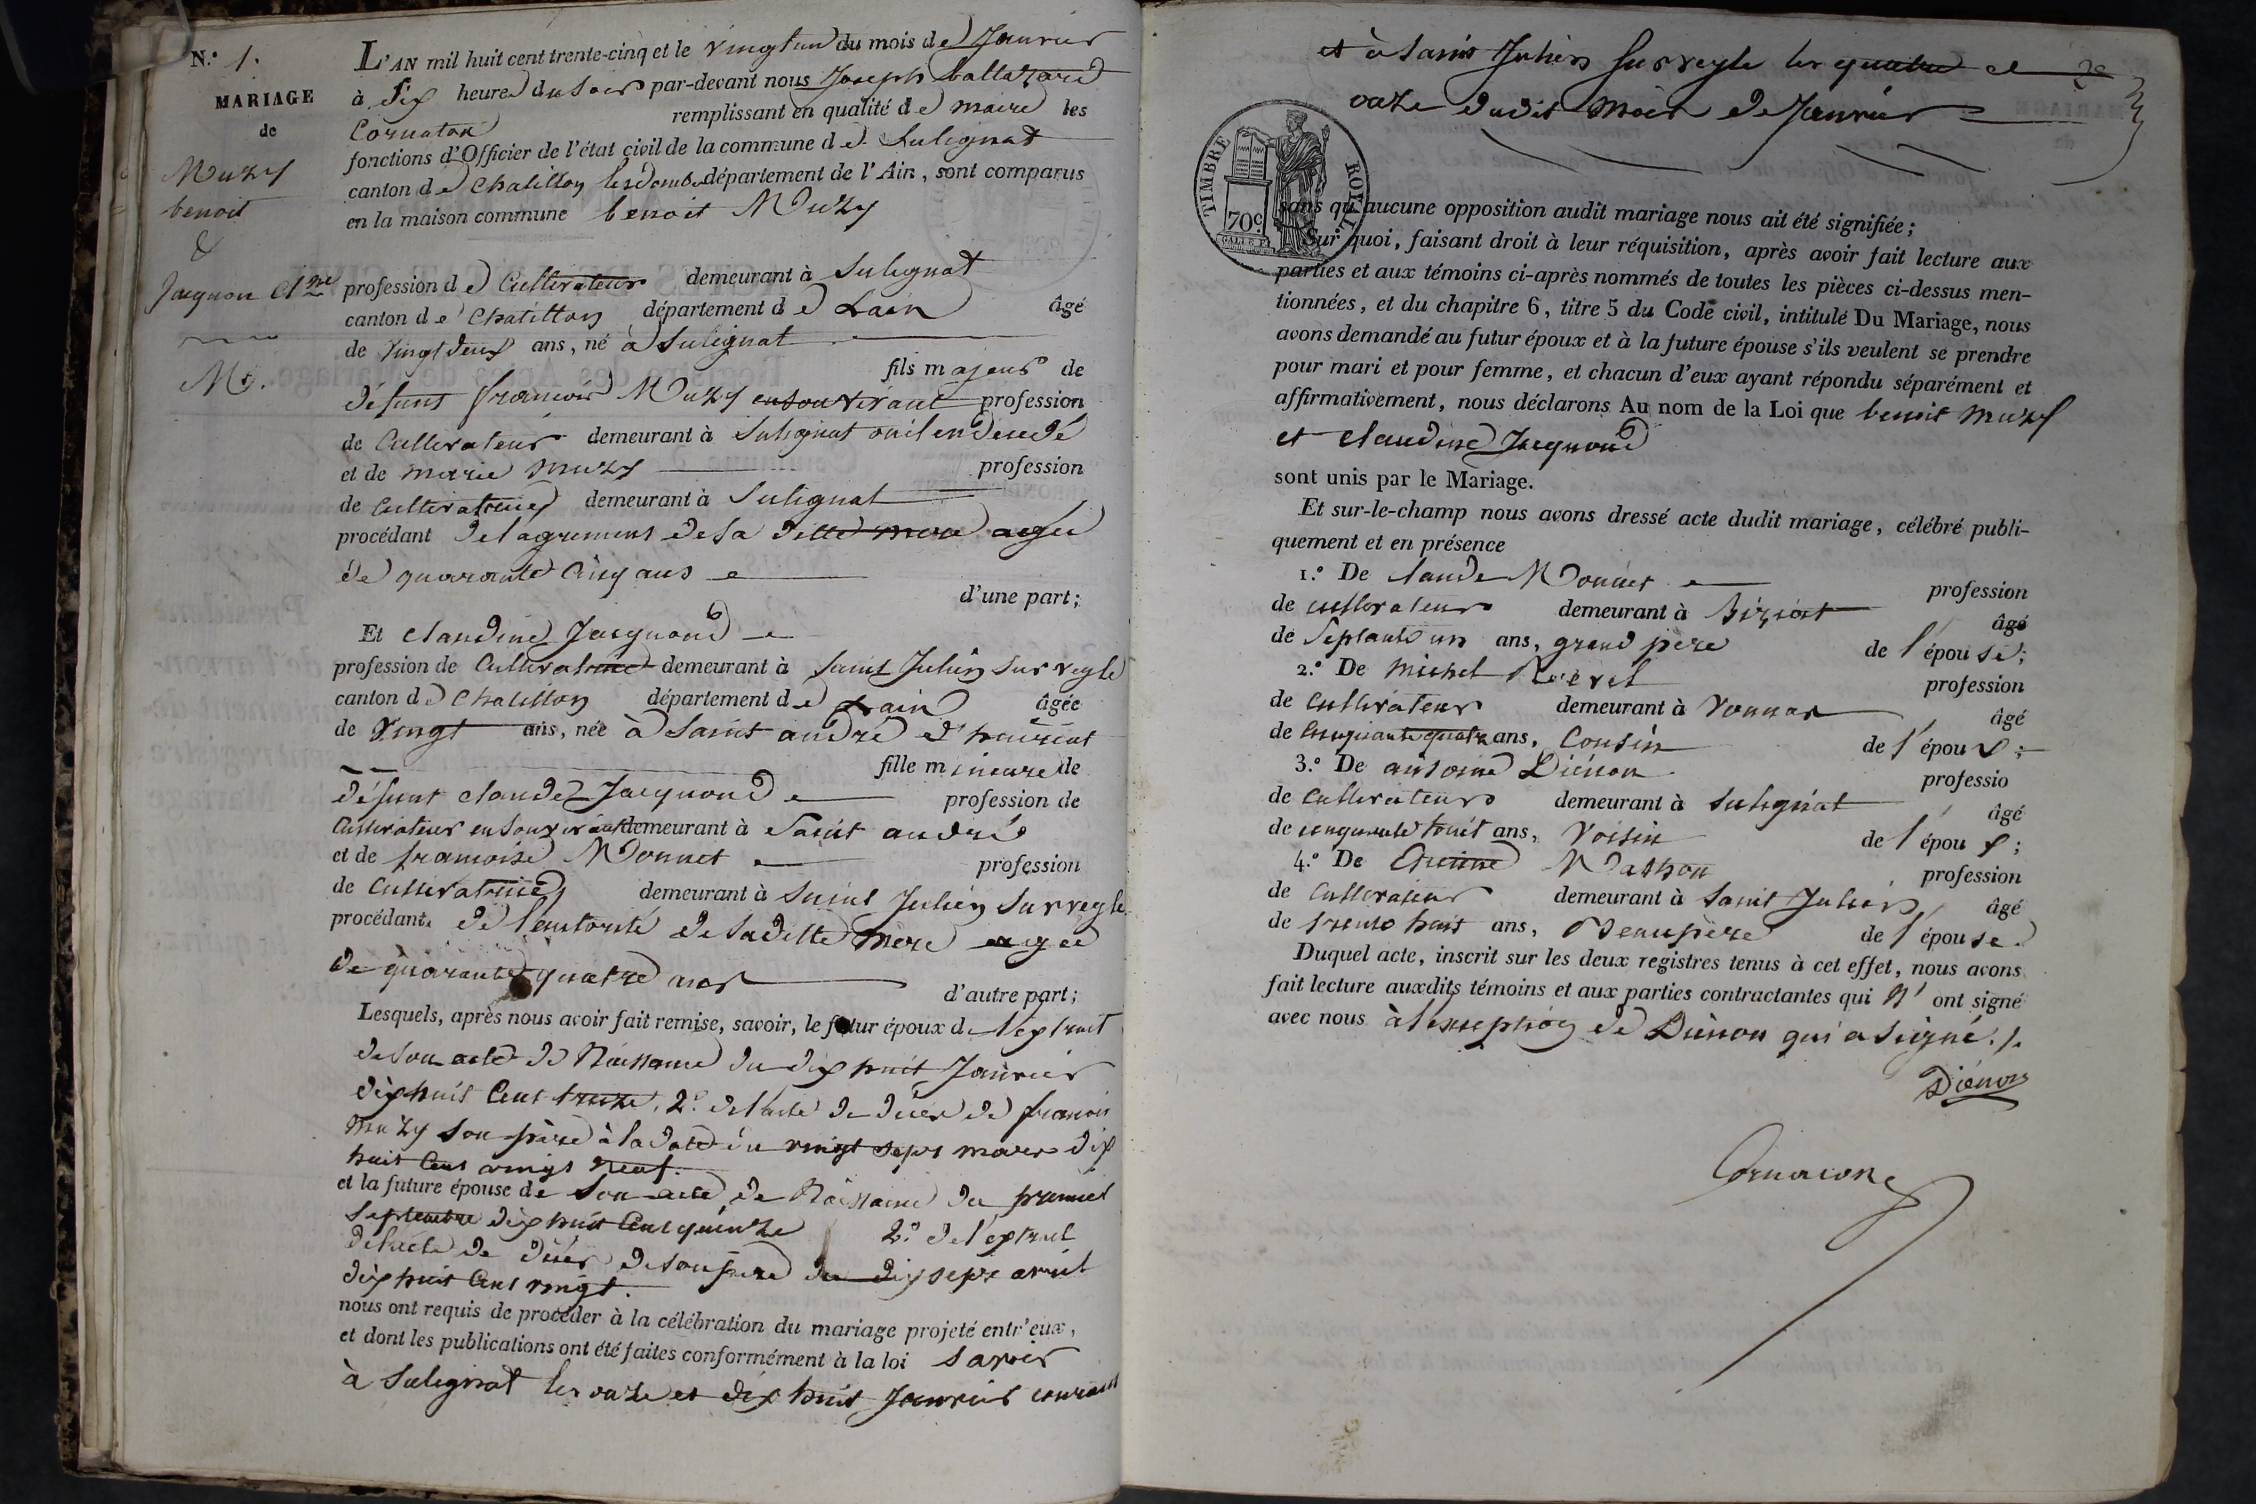 N.º 1.
MARIAGE
de
Muzy
benoit
&
Jacquon Cl.ne
L'AN mil huit cent trente-cinq et le vingt un du mois de Janvier
à Six heure du Soir par-devant nous Joseph baltazard
Cornaton remplissant en qualité de maire les
fonctions d'Officier de l'état civil de la commune de Sulignat
canton de Chatillon les dombes département de l'Ain, sont comparus
en la maison commune benoit Muzy
profession de Cultivateur demeurant à Sulignat
canton de Chatillon département de Lain âgé
de vingt deux ans, né à Sulignat
fils majeur de
défunt françois Muzy en son vivant profession
de Cultivateur demeurant à Sulignat ou il en decedé
et de marie muzy profession
de Cultivatrice demeurant à Sulignat
procédant de lagrement de sa ditte mere agée
de quarante Cinq ans
d'une part;
Et claudine Jacquond
profession de Cultivatrice demeurant à Saint Julien Sur veyle
canton de Chatillon département de Lain âgée
de vingt ans, née à Saint andré d'huiriat
fille mineure de
défunt claude Jacquond profession de
Cultivateur en Son vivant demeurant à Saint andré
et de francoise Monnet profession
de Cultivatrice demeurant à Saint Julien Sur veyle
procédant de l'autorité de sa ditte mere agée
de quarante quatre ans
d'autre part;
Lesquels, après nous avoir fait remise, savoir, le futur époux de l'extrait
de son acte de Naissance du dix huit Janvier
dix huit Cent treize, 2.º de l'acte de décès de francois
muzy son père à la date du vingt sept mars dix
huit Cent vingt neuf.
et la future épouse de Son acte de Naissance du premier
Septembre dix huit Cent quinze 2.º de l'extrait
de l'acte de décès de son pere du dix sept avril
dix huit Cent vingt.
nous ont requis de procéder à la célébration du mariage projeté entr'eux,
et dont les publications ont été faites conformément à la loi Savoir
à Sulignat les onze et dix huit Janvier courant
et à Saint Julien Sur veyle les quatre et
onze dudit mois de Janvier
TIMBRE ROYAL
70c.
sans qu'aucune opposition audit mariage nous ait été signifiée;
Sur quoi, faisant droit à leur réquisition, après avoir fait lecture aux
parties et aux témoins ci-après nommés de toutes les pièces ci-dessus men-
tionnées, et du chapitre 6, titre 5 du Code civil, intitulé Du Mariage, nous
avons demandé au futur époux et à la future épouse s'ils veulent se prendre
pour mari et pour femme, et chacun d'eux ayant répondu séparément et
affirmativement, nous déclarons Au nom de la Loi que benoit muzy
et claudine Jacquond
sont unis par le Mariage.
Et sur-le-champ nous avons dressé acte dudit mariage, célébré publi-
quement et en présence
1.º De claude Monnet profession
de cultivateur demeurant à Biziat âgé
de Septante un ans, grand père de l'épouse;
2.º De michel profession
de Cultivateur demeurant à Vonnas âgé
de Cinquante quatre ans, Cousin de l'époux;
3.º De antoine Diénon professio
de Cultivateur demeurant à Sulignat âgé
de cinquante huit ans, Voisin de l'époux;
4.º De Mathon profession
de Cultivateur demeurant à Saint Julien âgé
de trente huit ans, Beaupère de l'épouse.
Duquel acte, inscrit sur les deux registres tenus à cet effet, nous avons
fait lecture auxdits témoins et aux parties contractantes qui N' ont signé
avec nous à l'exception de Diénon qui a signé./.
Diénon
Cornaton